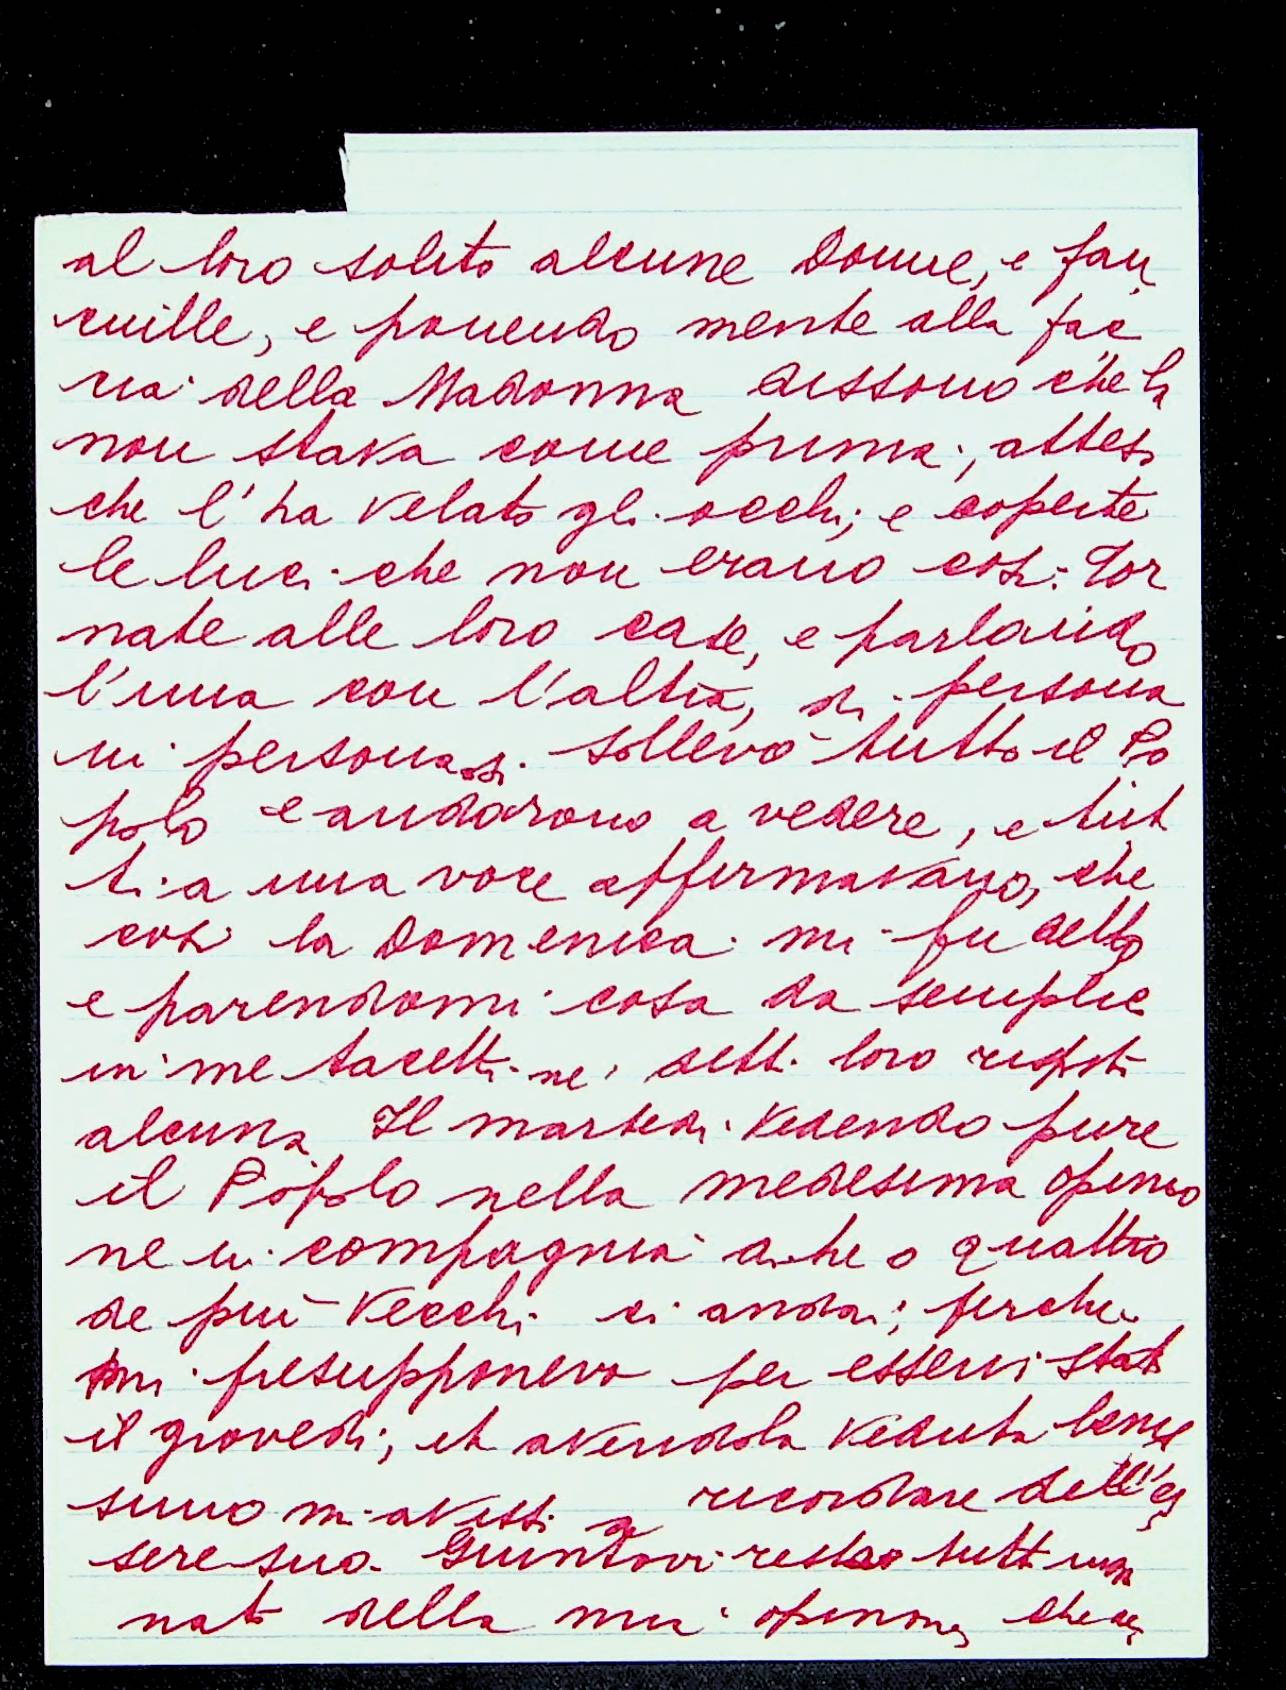 al loro solito alcune Donne, e fan
ciulle, e ponendo mente alla fac
cia della Madonna dissono che la
non stava come prima, attes
che l'ha velato gli occhi, e coperte
le luci che non erano così. Tor
nate alle loro case, e parlando
l'una con l'altra, di persona
in persona si sollevò tutto il Po
polo e andorono a vedere, e tut
ti a una voce affirmavano, che
così la Domenica mi fu detto
e parendomi cosa da semplic
in me tacetti ne detti loro rispst
alcuna Il martedi vedendo pure
il Popolo nella medesima opinio
ne in compagnia di tre o quattro
de più vecchi ci andai; perche
mi presupponevo per esservi stat
il giovedi, et avendola veduta benis
simo mi avessi a ricordare dell'es
sere suo. Giuntovi restao tutt ingan
nato della mia opinion, che